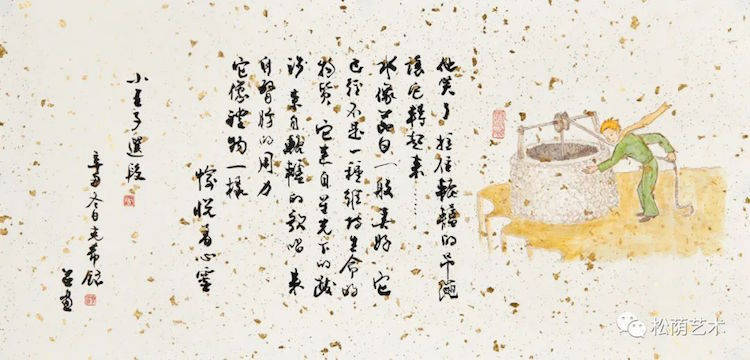 他笑了 拉住轆轤的吊繩
讓它轉起來……
水像節日一般美好 它
已經不是一種維持生命的
物質 它來自星光下的跋
涉 來自轆轤的歌唱 來
自臂膀的用力
它像禮物一樣
愉悅着心靈
小王子選段
辛丑冬日克希錄
松荫艺术